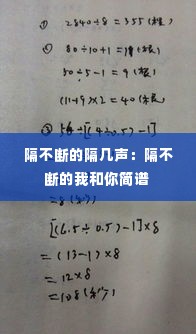 ① 2840÷8=355(根)
② 80÷10+1=(根)
50÷5-1=9(根)
(11+9)×2=40(根)
③ 56÷[(4÷0.5)-1]
隔不断的隔几声：隔不
断的我和你简谱
=8(秒)
[(6.5÷0.5)-1]×8
=(13-1)×8
=12×8
=108(秒)